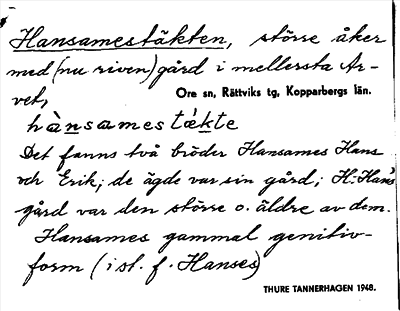 Hansamestäkten, större åker
med (nu riven) gård i mellersta Ar-
vet,
Ore sn, Rättviks tg, Kopparbergs län.
hànsamestǽkte
Det fanns två bröder Hansames Hans
och Erik; de ägde var sin gård; H. Hans
gård var den större o. äldre av dem.
Hansames gammal genitiv-
form (i st. f. Hanses)
THURE TANNERHAGEN 1948.